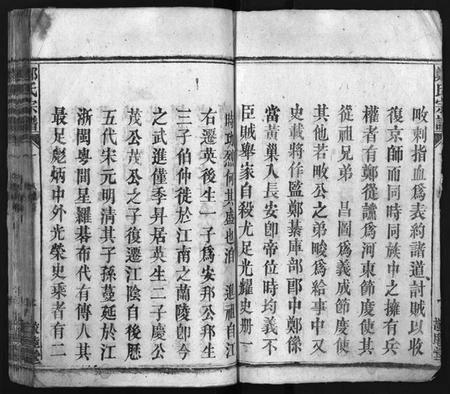 畋刺指血爲表約諸道討賊以收
復京師而同時同族中之擁有兵
權者有鄭從讜爲河東節度使其
從祖兄弟 昌圖爲義成節度使
其他若畋公之弟畯爲給事中又
史載將作監鄭綦庫部郎中鄭係
當黃巢入長安卽帝位時均義不
臣賊舉家自殺尤足光耀史册一
時功烈何其盛也洎 進祖自江
右遷英後生一子爲安邦公邦生
三子伯仲徙於江南之蘭陵卽今
之武進僅季昇居英生二子慶公
茂公茂公之子復遷江陰自後歷
五代宋元明清其子孫蔓延於江
浙閩粤間星羅碁布代有傳人其
最足彪炳中外光榮史乘者有二
鄭氏宗譜